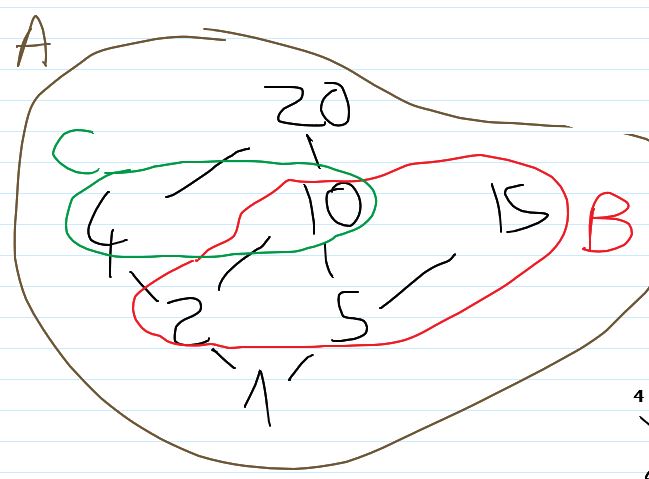 A
20
C
4 10 15 B
2 5
1
4